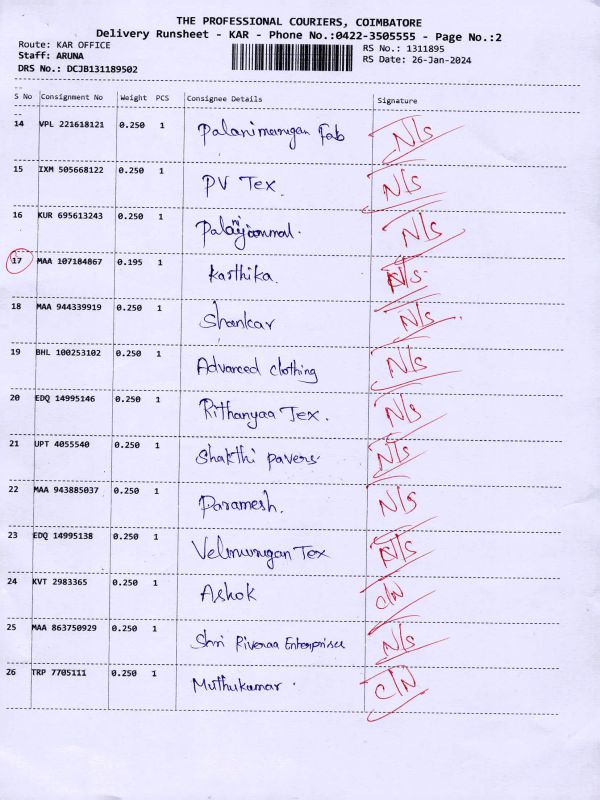 THE PROFESSIONAL COURIERS, COIMBATORE
Delivery Runsheet - KAR - Phone No.:0422-3505555 - Page No.:2
Route: KAR OFFICE RS No.: 1311895
Staff: ARUNA RS Date: 26-Jan-2024
DRS No.: DCJB131189502
S No Consignment No Weight PCS Consignee Details Signature
14 VPL 221618121 0.250 1 Palanimurugan Fab N/s
15 IXM 505668122 0.250 1 PV Tex. N/s
16 KUR 695613243 0.250 1 Palaniyammal. N/s
17 MAA 107184867 0.195 1 Karthika. N/s
18 MAA 944339919 0.250 1 Shankar N/s
19 BHL 100253102 0.250 1 Advanced clothing N/s
20 EDQ 14995146 0.250 1 Rithanyaa Tex. N/s
21 UPT 4055540 0.250 1 Shakthi pavers N/s
22 MAA 943885037 0.250 1 Paramesh. N/s
23 EDQ 14995138 0.250 1 Velmurugan Tex N/s
24 KVT 2983365 0.250 1 Ashok C/N
25 MAA 863750929 0.250 1 Shri Riveraa Enterprises N/s
26 TRP 7705111 0.250 1 Muthukumar. C/N